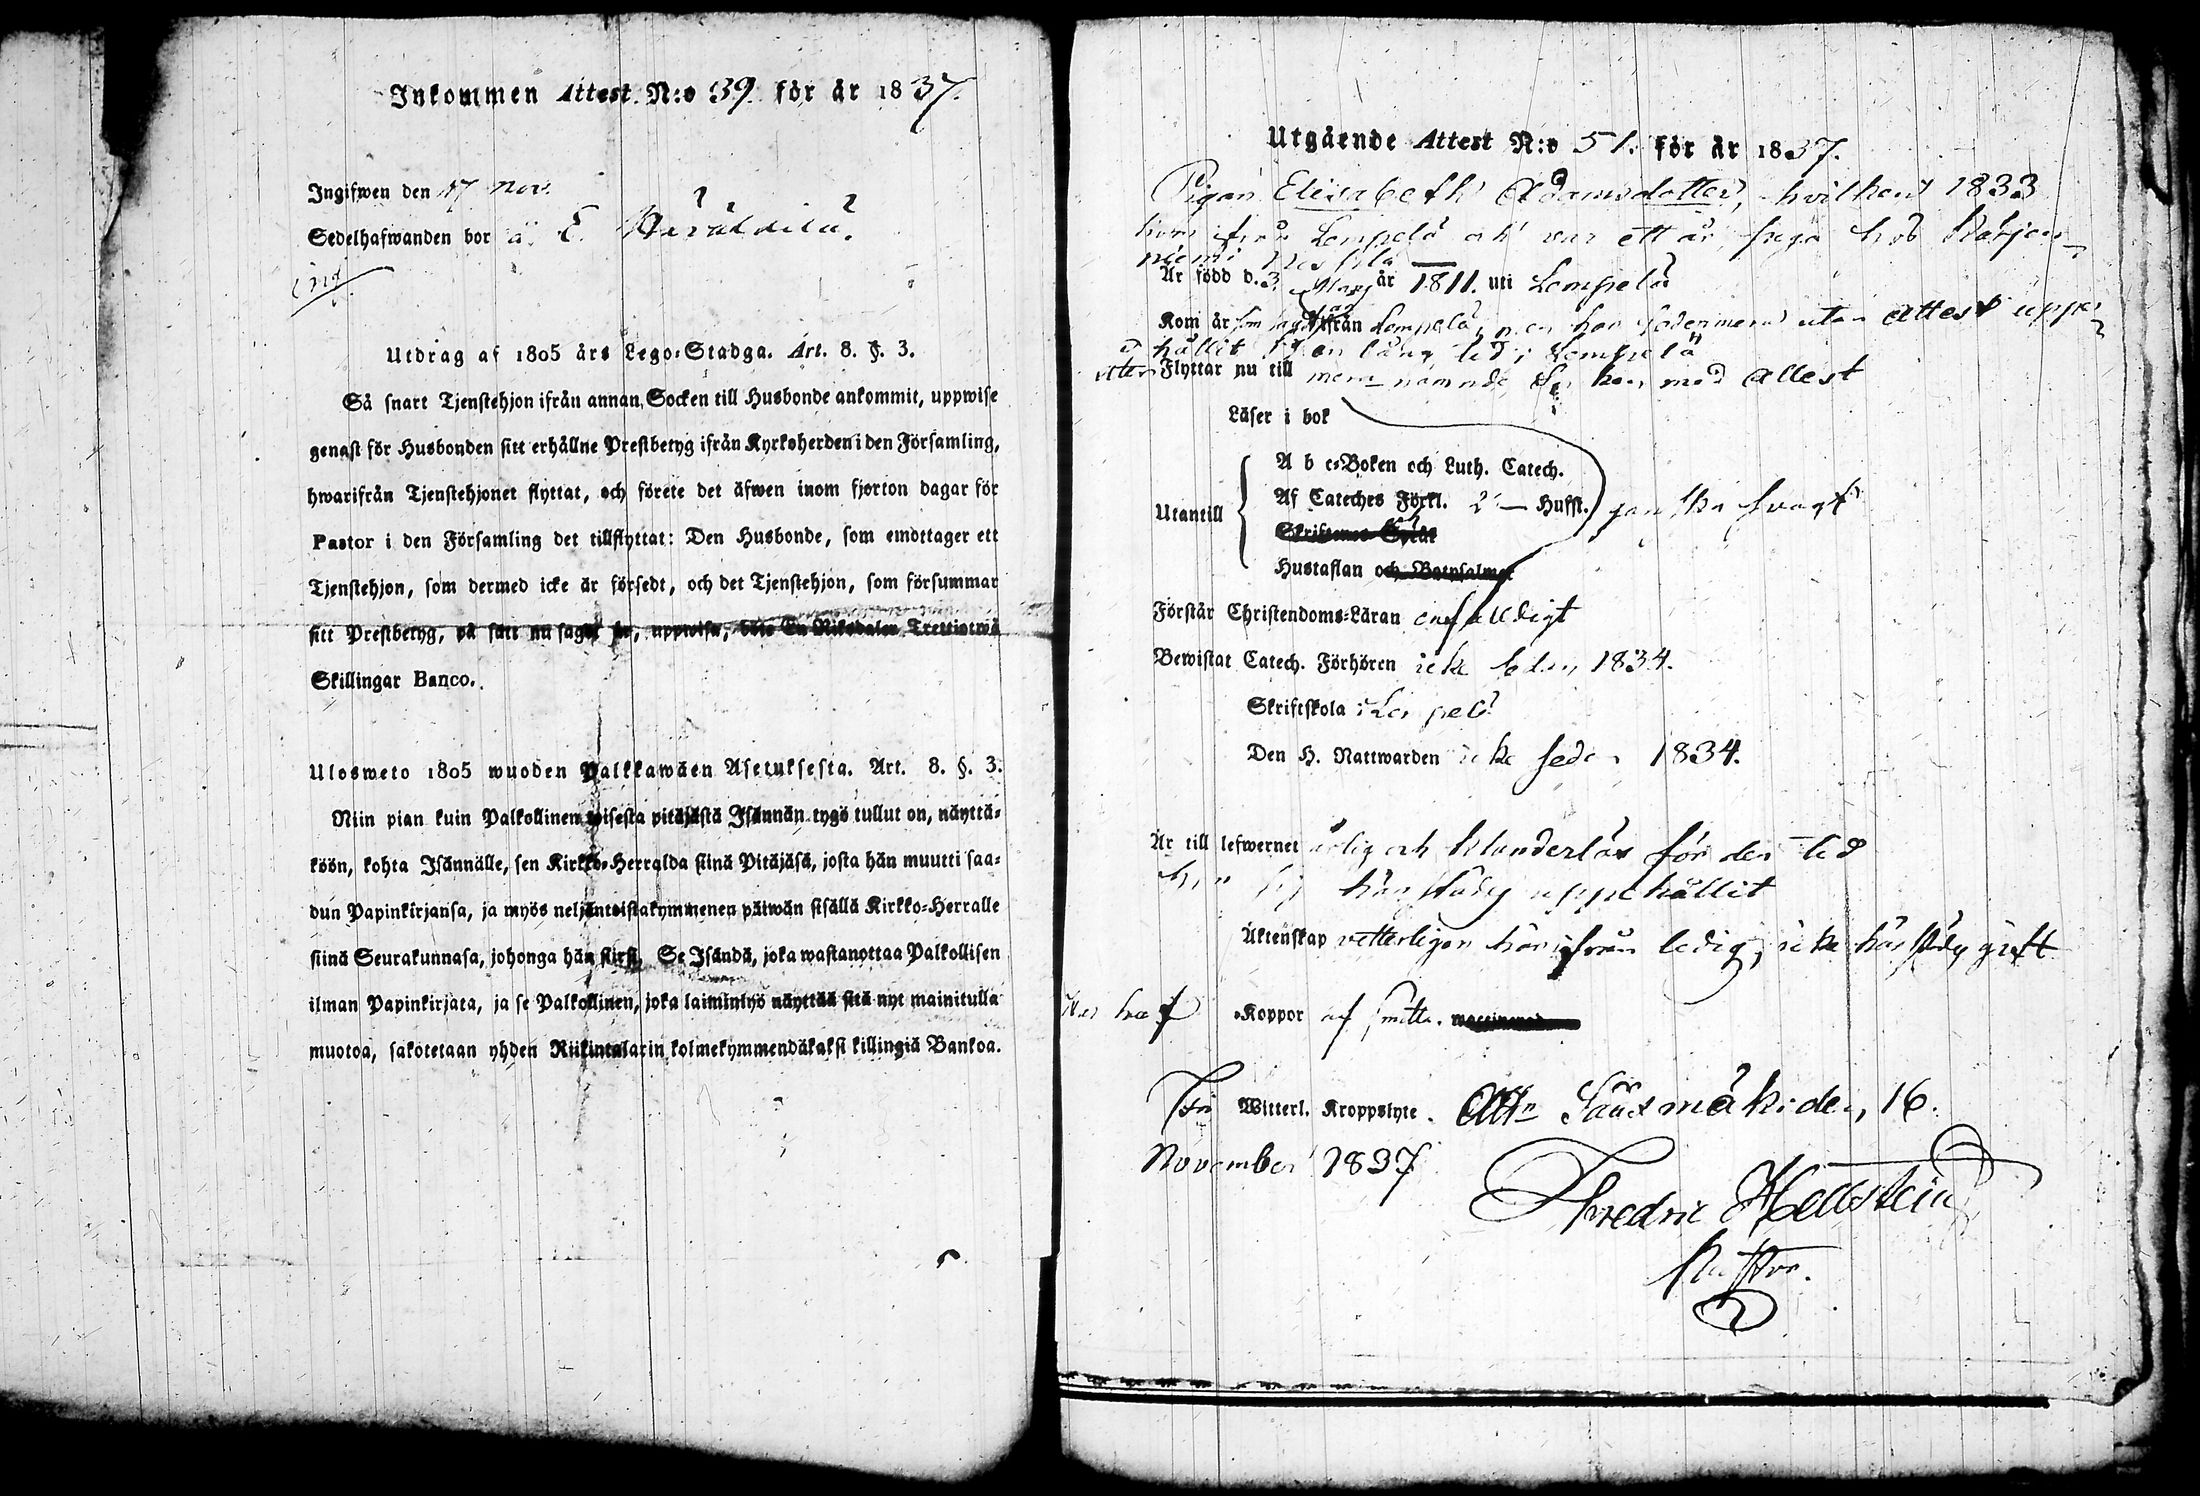 Inkommen Attest. N:o 39. för år 1837.
Ingifwen den 17 nov.
Sedelhafwanden bor å E.
Utdrag af 1805 års Lego-Stadga. Art. 8. §. 3.
Så snart Tjenstehjon ifrån annan Socken till Husbonde ankommit, uppwise
genast för Husbonden sitt erhållne Prestbetyg ifrån Kyrkoherden i den Församling,
hwarifrån Tjenstehjonet flyttat, och förete det äfwen inom fjorton dagar för
Pastor i den Församling det tillflyttat: Den Husbonde, som emottager ett
Tjenstehjon, som dermed icke är försedt, och det Tjenstehjon, som försummar
sitt Prestbetyg, på sätt nu sagdt är, uppwisa, böte En Riksdaler Trettiotwå
Skillingar Banco.
Ulosweto 1805 wuoden Palkkawäen Asetuksesta. Art. 8. §. 3.
Niin pian kuin Palkollinen toisesta pitäjästä Isännän tygö tullut on, näyttä-
köön, kohta Isännälle, sen Kirkko-Herralda siinä Pitäjäsä, josta hän muutti saa-
dun Papinkirjansa, ja myös neljäntoistakymmenen päiwän sisällä Kirkko-Herralle
siinä Seurakunnasa, johonga hän siirsi. Se Isändä, joka wastanottaa Palkollisen
ilman Papinkirjata, ja se Palkollinen, joka laiminlyö näyttää sitä nyt mainitulla
muotoa, sakotetaan yhden Riikintalarin kolmekymmendäkaksi killingiä Bankoa.
Utgående Attest N:o 51. för år 1837.
Pigan Elisabeth Adamsdotter, hvilken 1833
kom från Lempelä och var ett år piga hos
Är född d. 3 Maj år 1811. uti Lempelä
Kom år ifrån Lempelä, men har sedermera utan attest uppe-
hållit sig en lång tid i Lempelä
Flyttar nu till nämnde med attest
Läser i bok
A b c-Boken och Luth. Catech.
Utantill Af Cateches Förkl. 2 — Hufst. ganska svagt
Skriftenes Språk
Hustaflan och Botpsalmer
Förstår Christendoms-Läran enfalldigt
Bewistat Catech. Förhören icke sedan 1834.
Skriftskola i Lempelä
Den H. Nattwarden icke sedan 1834.
Är till lefwernet ärlig och klanderlös för den tid
hon sig härstädes uppehållit
Äktenskap vetterligen härifrån ledig, icke härstädes gift
Har haft Koppor af smitta. waccinerad
Fri Witterl. Kroppslyte. Att: Sääxmäki den 16.
November 1837
Fredric Hellstein
Pastor.